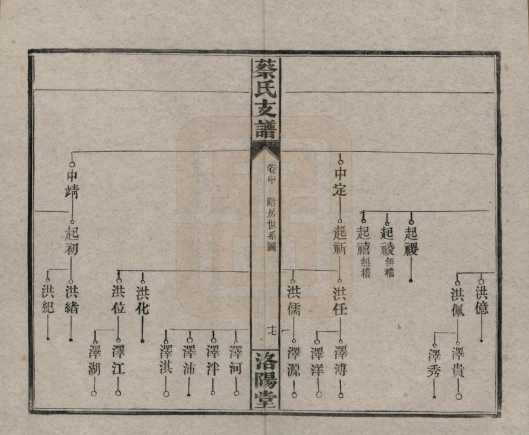 蔡氏支譜
卷中
世系圖
七
洛陽堂
中定
起禝
起稜無稽
起禧無稽
起新
洪億
洪佩
洪任
洪儒
澤貴
澤秀
澤溥
澤洋
澤源
中靖
起初
洪化
洪位
洪緒
洪紀
澤河
澤泮
澤沛
澤淇
澤江
澤湖